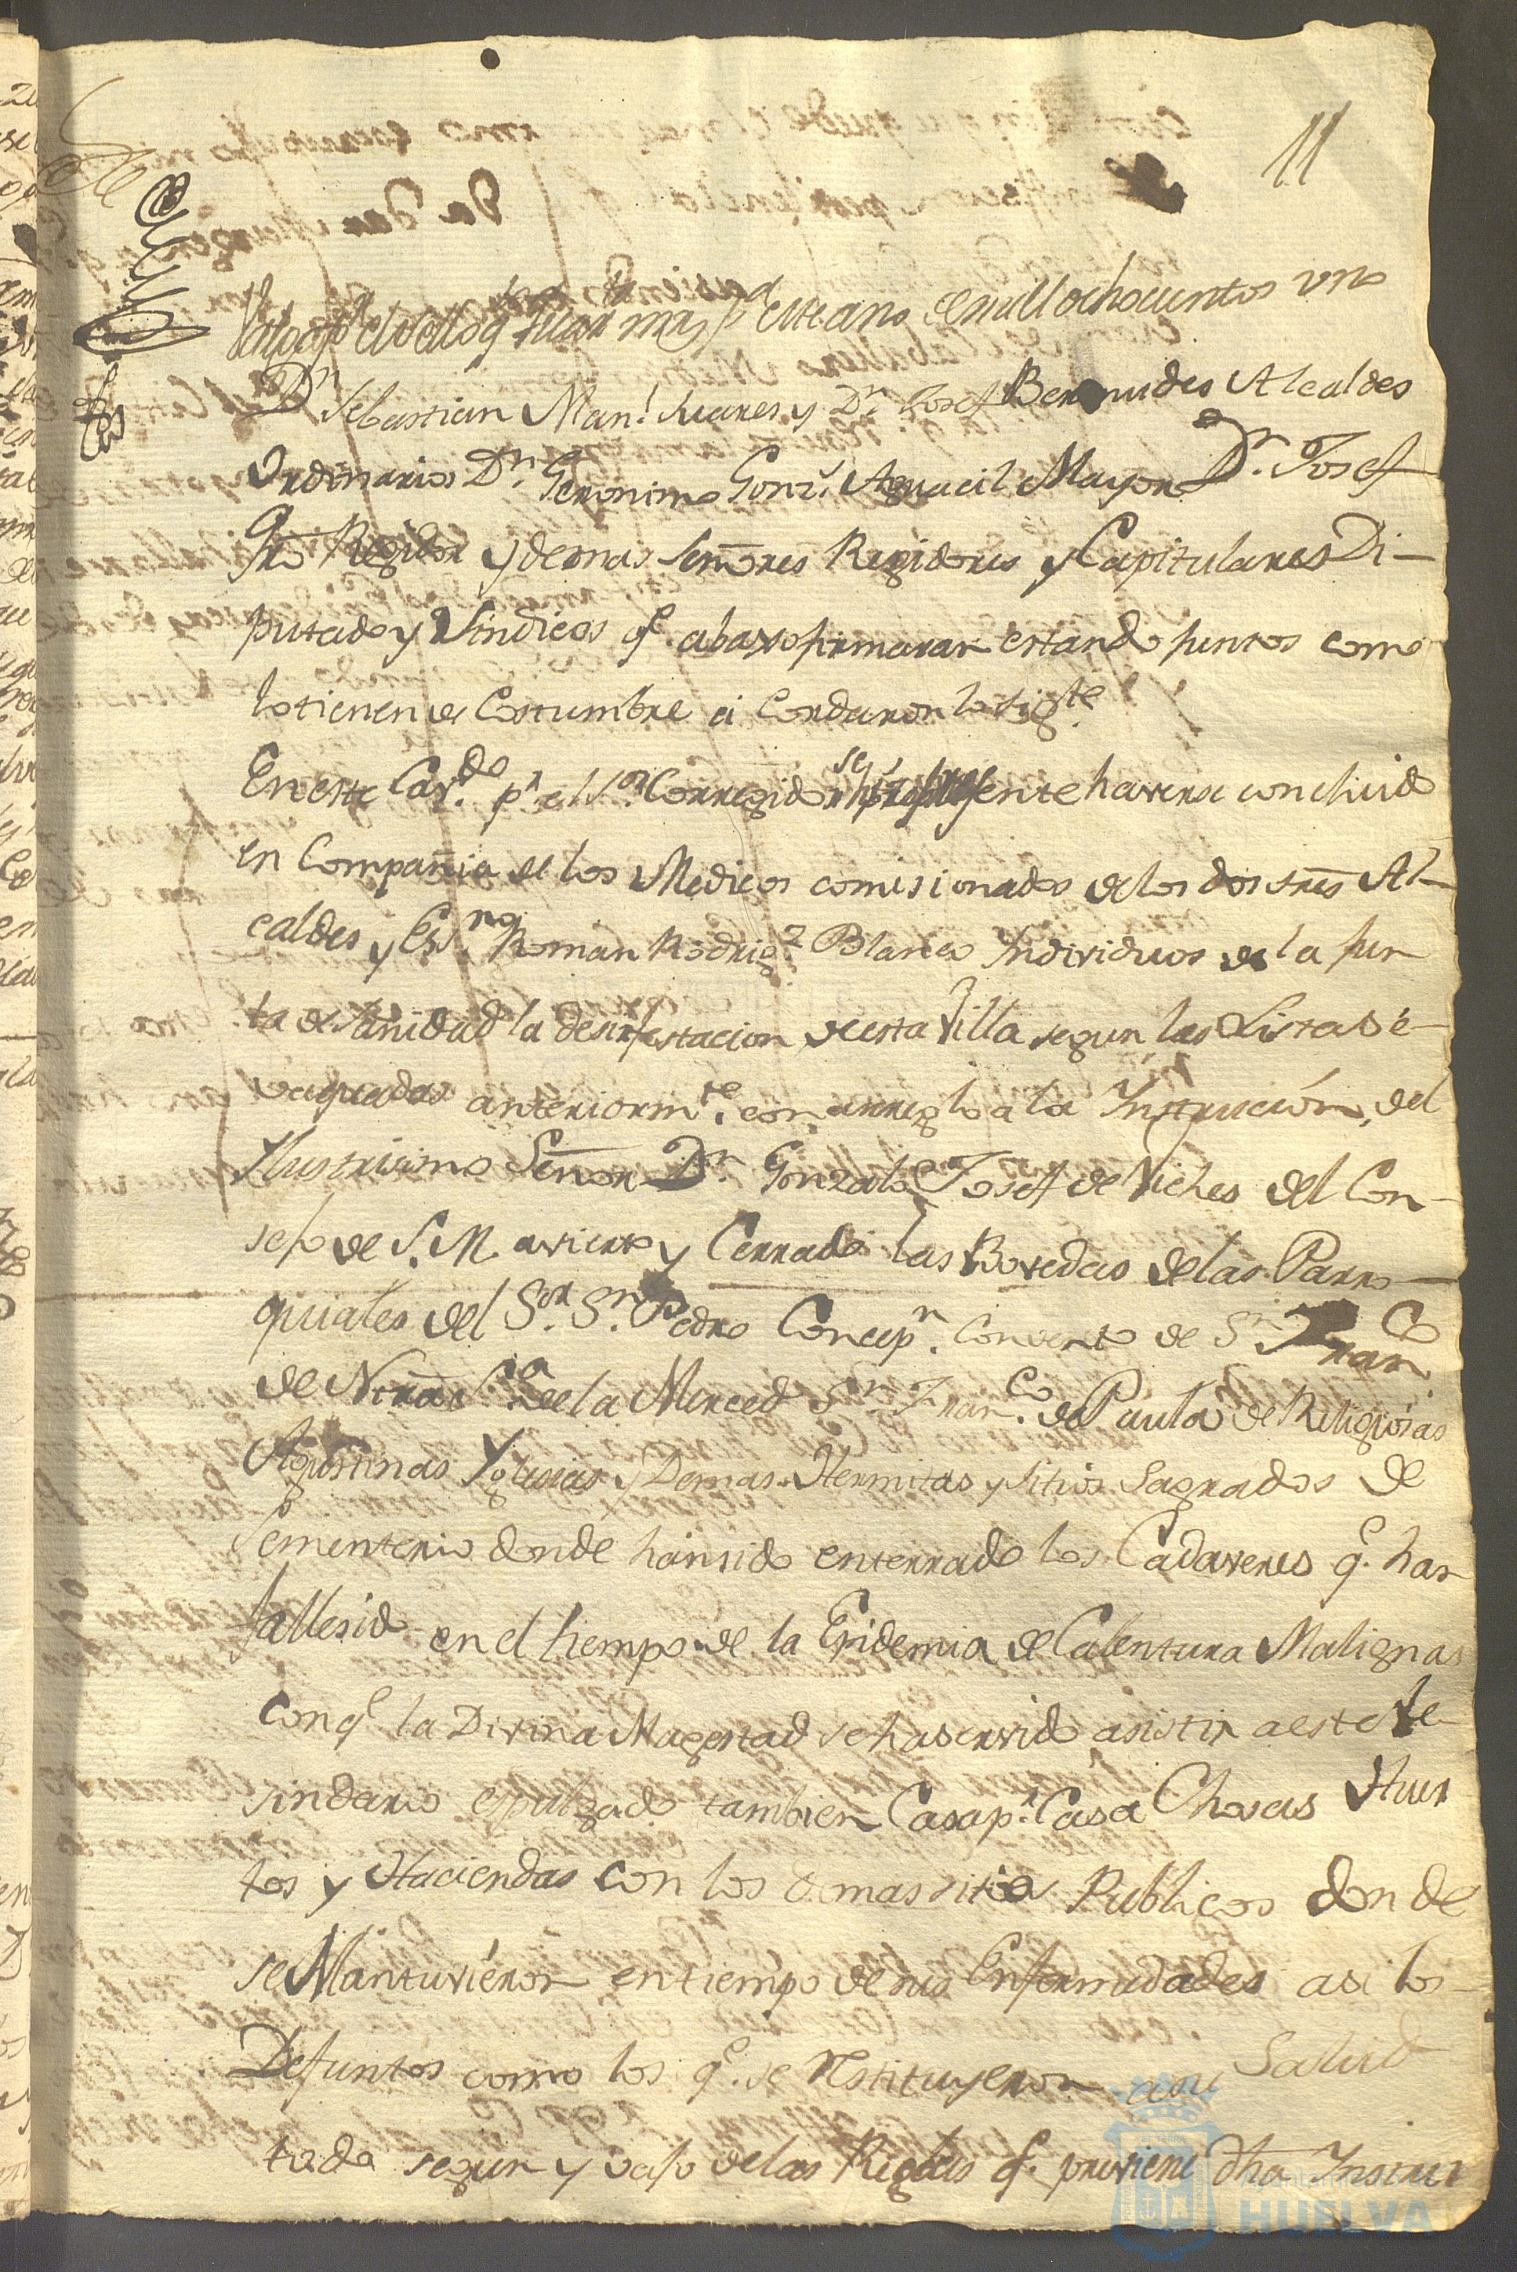 11
este año de mill ochocientos uno
Dn Sebastian Manl. Suares y Dn. Josef Bermudes Alcaldes
Ordinarios Dn. Geronimo Gonz. Aguacil Mayor Dn. Josef
Regidor y demas Señores Regidores y Capitulares Di-
putado y Sindicos qe. abaxo firmaran estando juntos como
lo tienen de Costumbre a Cordaron lo sigte.
En este Cavdo. pr el Sor. Corregidor se hizo presente haverse concluido
en Compañia de los Medicos comisionados de los dos sres Al-
caldes y Esno. Roman Rodrigz Blanco Individuos de la Jun
ta de Sanidad la desinfestacion de esta Villa segun las Listas e-
vaquadas anteriormte. con arreglo a la Instruccion, del
Ylustrisimo Señor Dn. Gonzalo Josef de Vilches del Con-
sejo de S.M. avierto y Cerrado las Bovedas de las Parro-
quiales del Sor. Sn. Pedro Concepn. Convento de Sn. Franco
de Ntra Sa. de la Merced Sn. Franco. de Paula de Religiosas
Agustinas Yglesias y Demas Hermitas y sitios Sagrados de
Sementerio donde han sido enterrado los Cadaveres qe. han
fallesido en el tiempo de la Epidemia de Calentura Malignas
con qe la Divina Magestad se ha servido asistir a este Ve-
sindario espulgado tambien Casa pr. Casa Chosas Huer
tos y Haciendas con los demas sitios Publicos donde
se Mantuvieron en tiempo de sus Enfermedades asi los
Defuntos como los qe. se restituyeron a su Salud
todo segun y vajo de las Reglas qe. previene dha Instruc
Ayuntamiento de
HUELVA